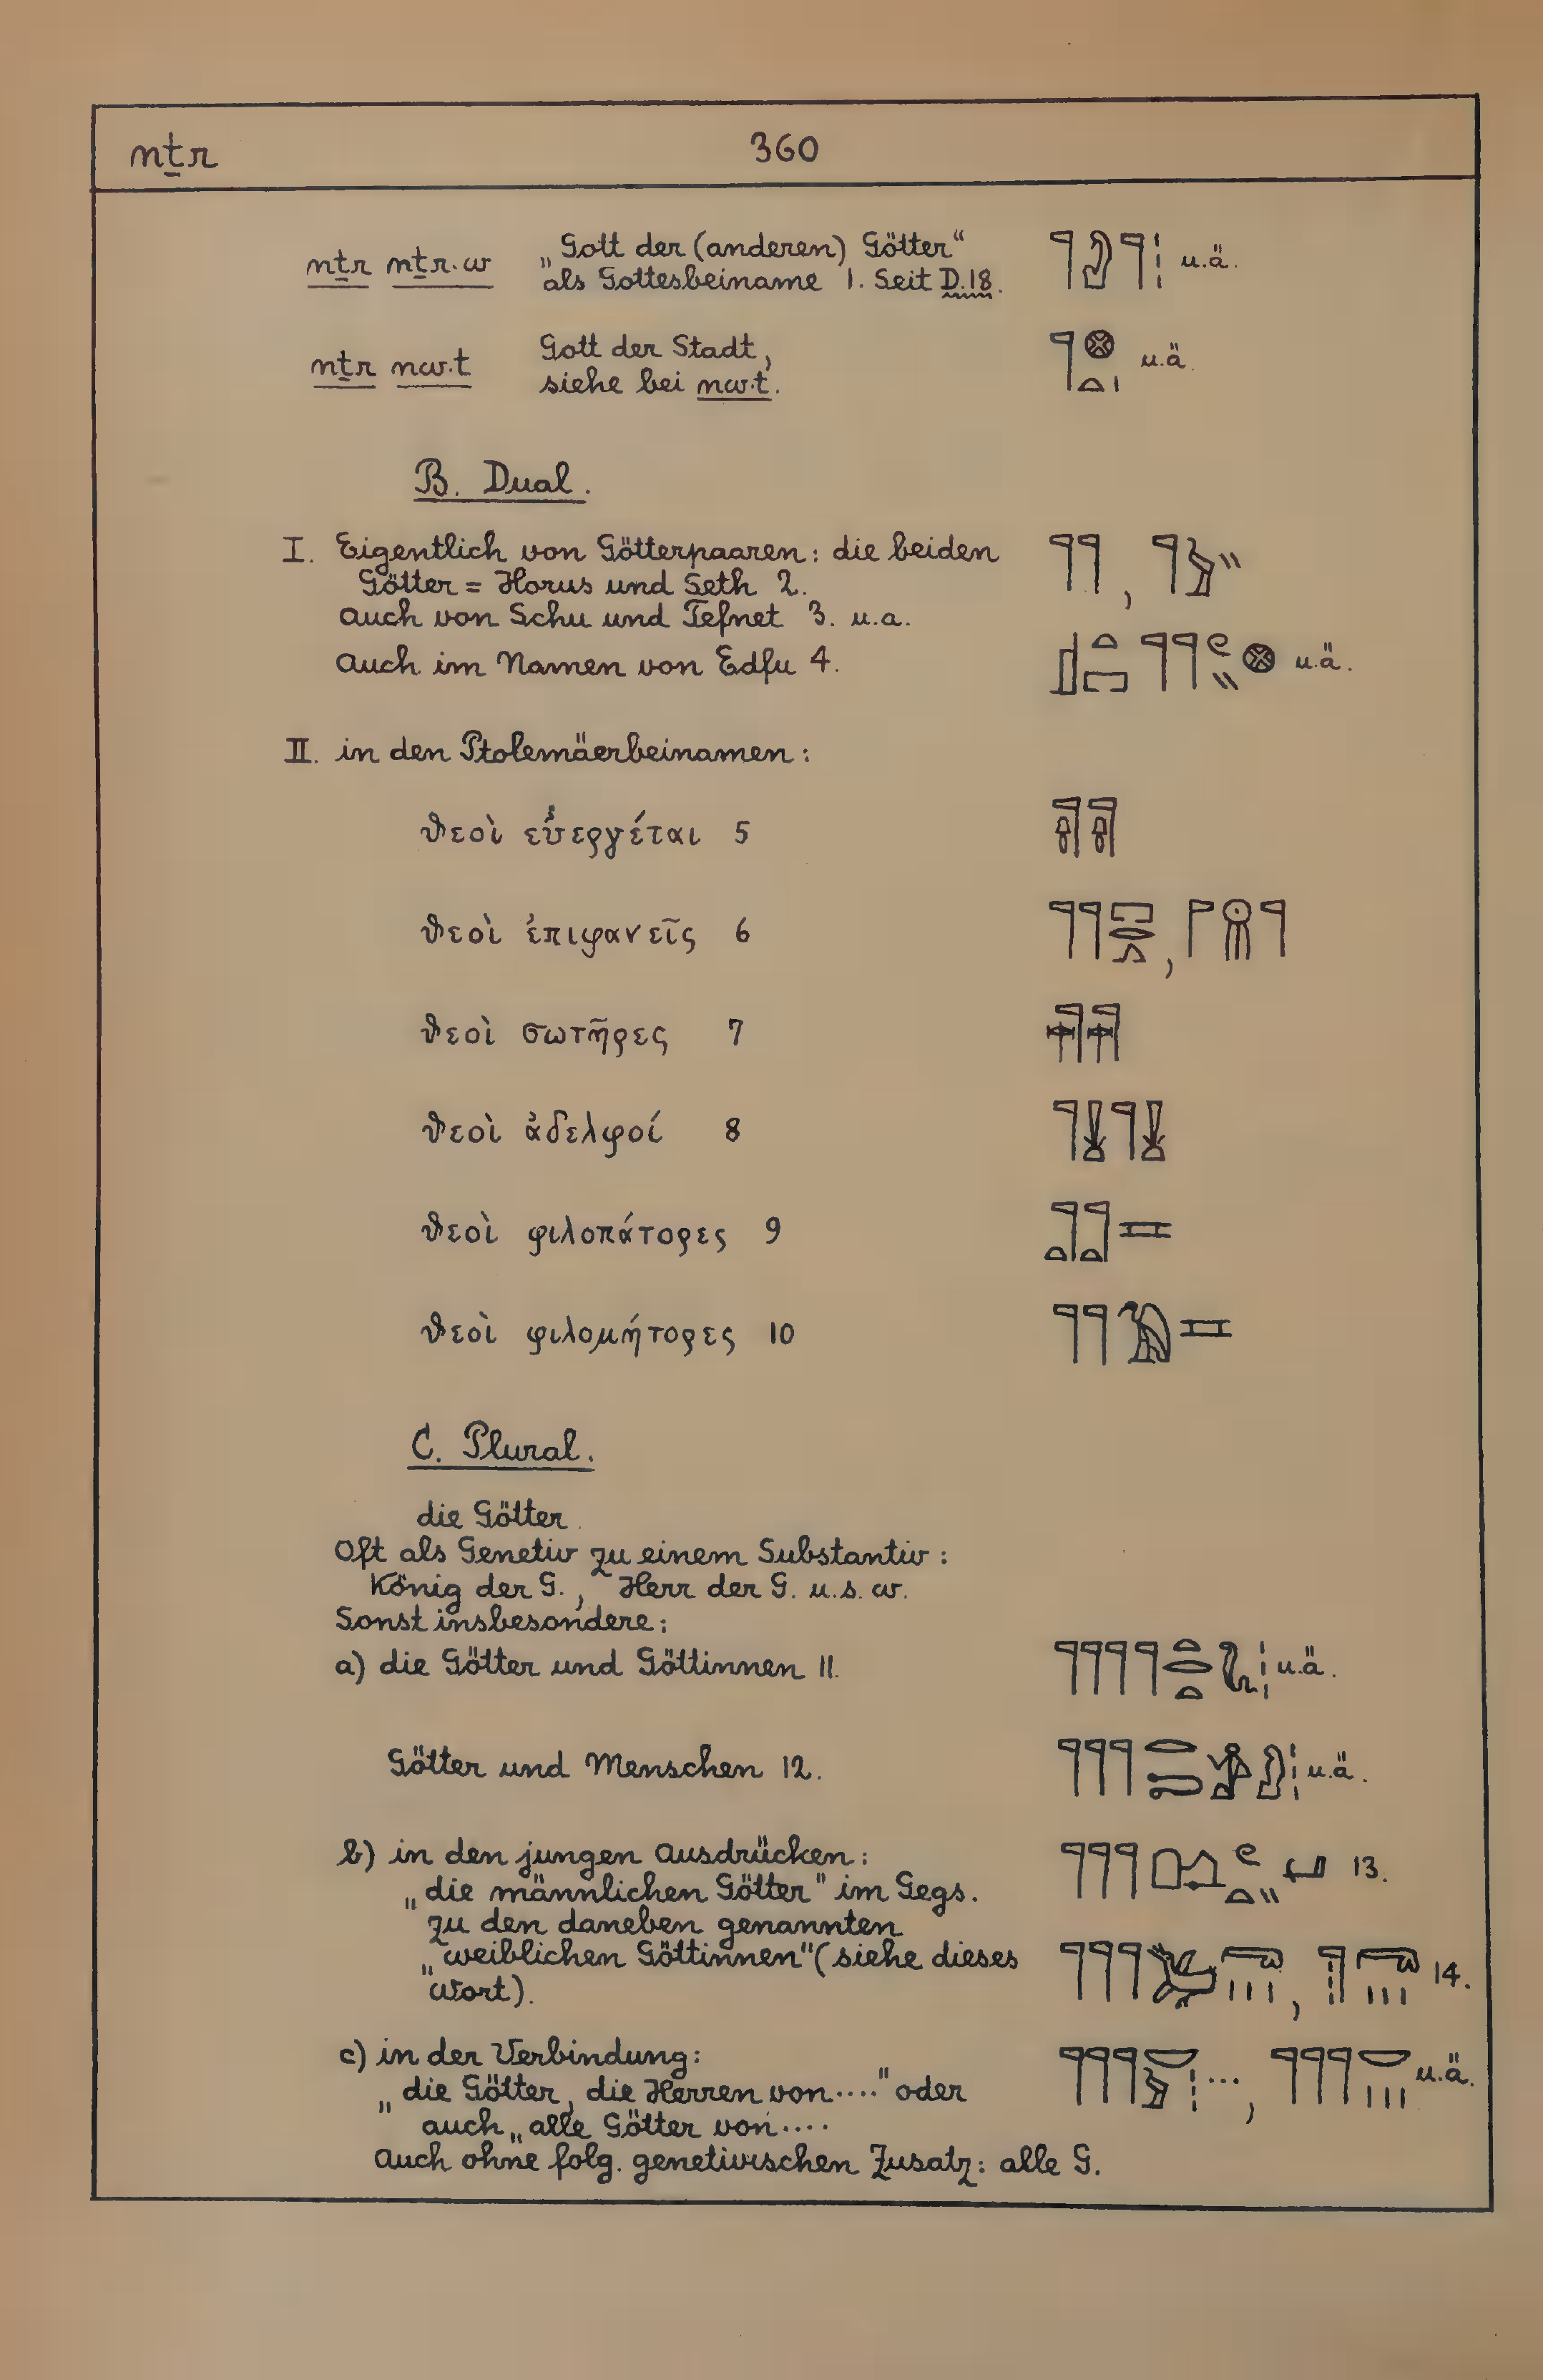 nṯr 360
nṯr nṯr.w „Gott der (anderen) Götter“
als Gottesbeiname 1. Seit D.18. u.ä.
nṯr nw.t Gott der Stadt,
siehe bei nw.t. u.ä.
B. Dual.
I. Eigentlich von Götterpaaren: die beiden
Götter = Horus und Seth 2.
auch von Schu und Tefnet 3. u.a.
auch im Namen von Edfu 4. u.ä.
II. in den Ptolemäerbeinamen:
ϑεοὶ εὐεργέται 5
ϑεοὶ ἐπιφανεῖς 6
ϑεοὶ σωτῆρες 7
ϑεοὶ ἀδελφοί 8
ϑεοὶ φιλοπάτορες 9
ϑεοὶ φιλομήτορες 10
C. Plural.
die Götter.
Oft als Genetiv zu einem Substantiv:
König der G., Herr der G. u.s.w.
Sonst insbesondere:
a) die Götter und Göttinnen 11. u.ä.
Götter und Menschen 12. u.ä.
b) in den jungen Ausdrücken: 13.
„die männlichen Götter“ im Gegs.
zu den daneben genannten
„weiblichen Göttinnen“ (siehe dieses
Wort). 14.
c) in der Verbindung: u.ä.
„die Götter, die Herren von....“ oder
auch „alle Götter von....
Auch ohne folg. genetivischen Zusatz: alle G.